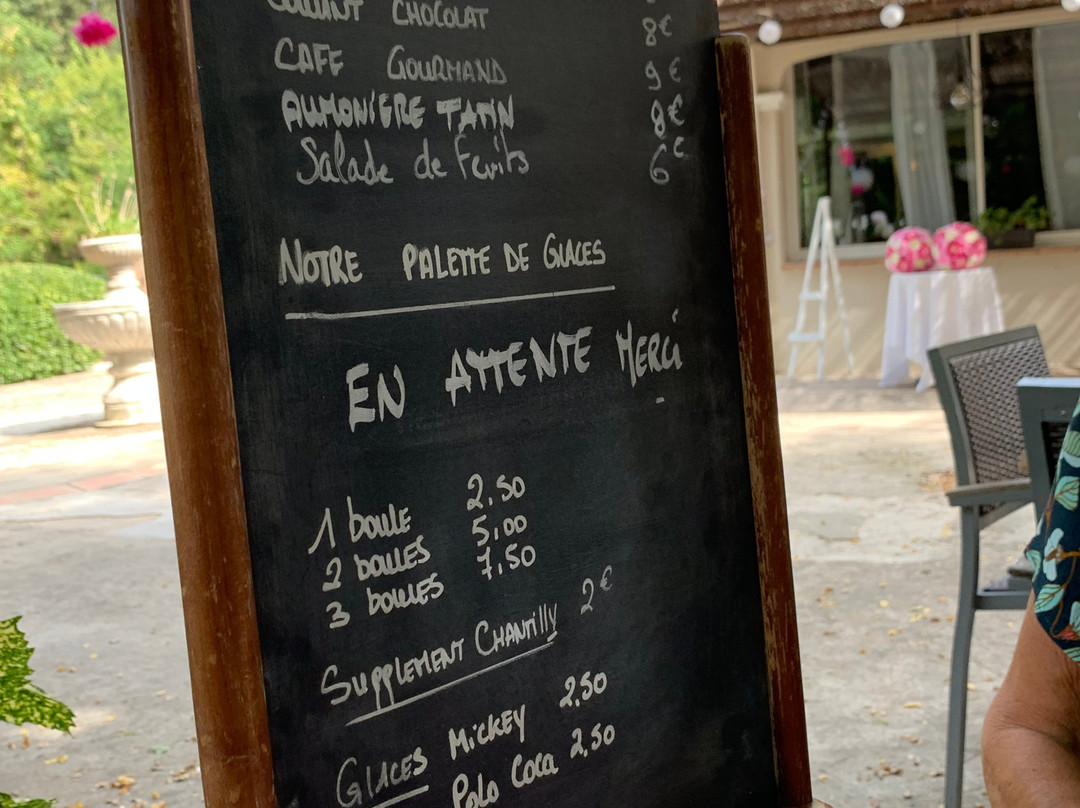 COULANT CHOCOLAT 8€
CAFE GOURMAND 9€
AUMONIERE TATIN 8€
Salade de fruits 6€
NOTRE PALETTE DE GLACES
EN ATTENTE MERCI
1 boule 2,50
2 boules 5,00
3 boules 7,50
SUPPLEMENT CHANTILLY 2€
GLACES MICKEY 2,50
Polo Coca 2,50